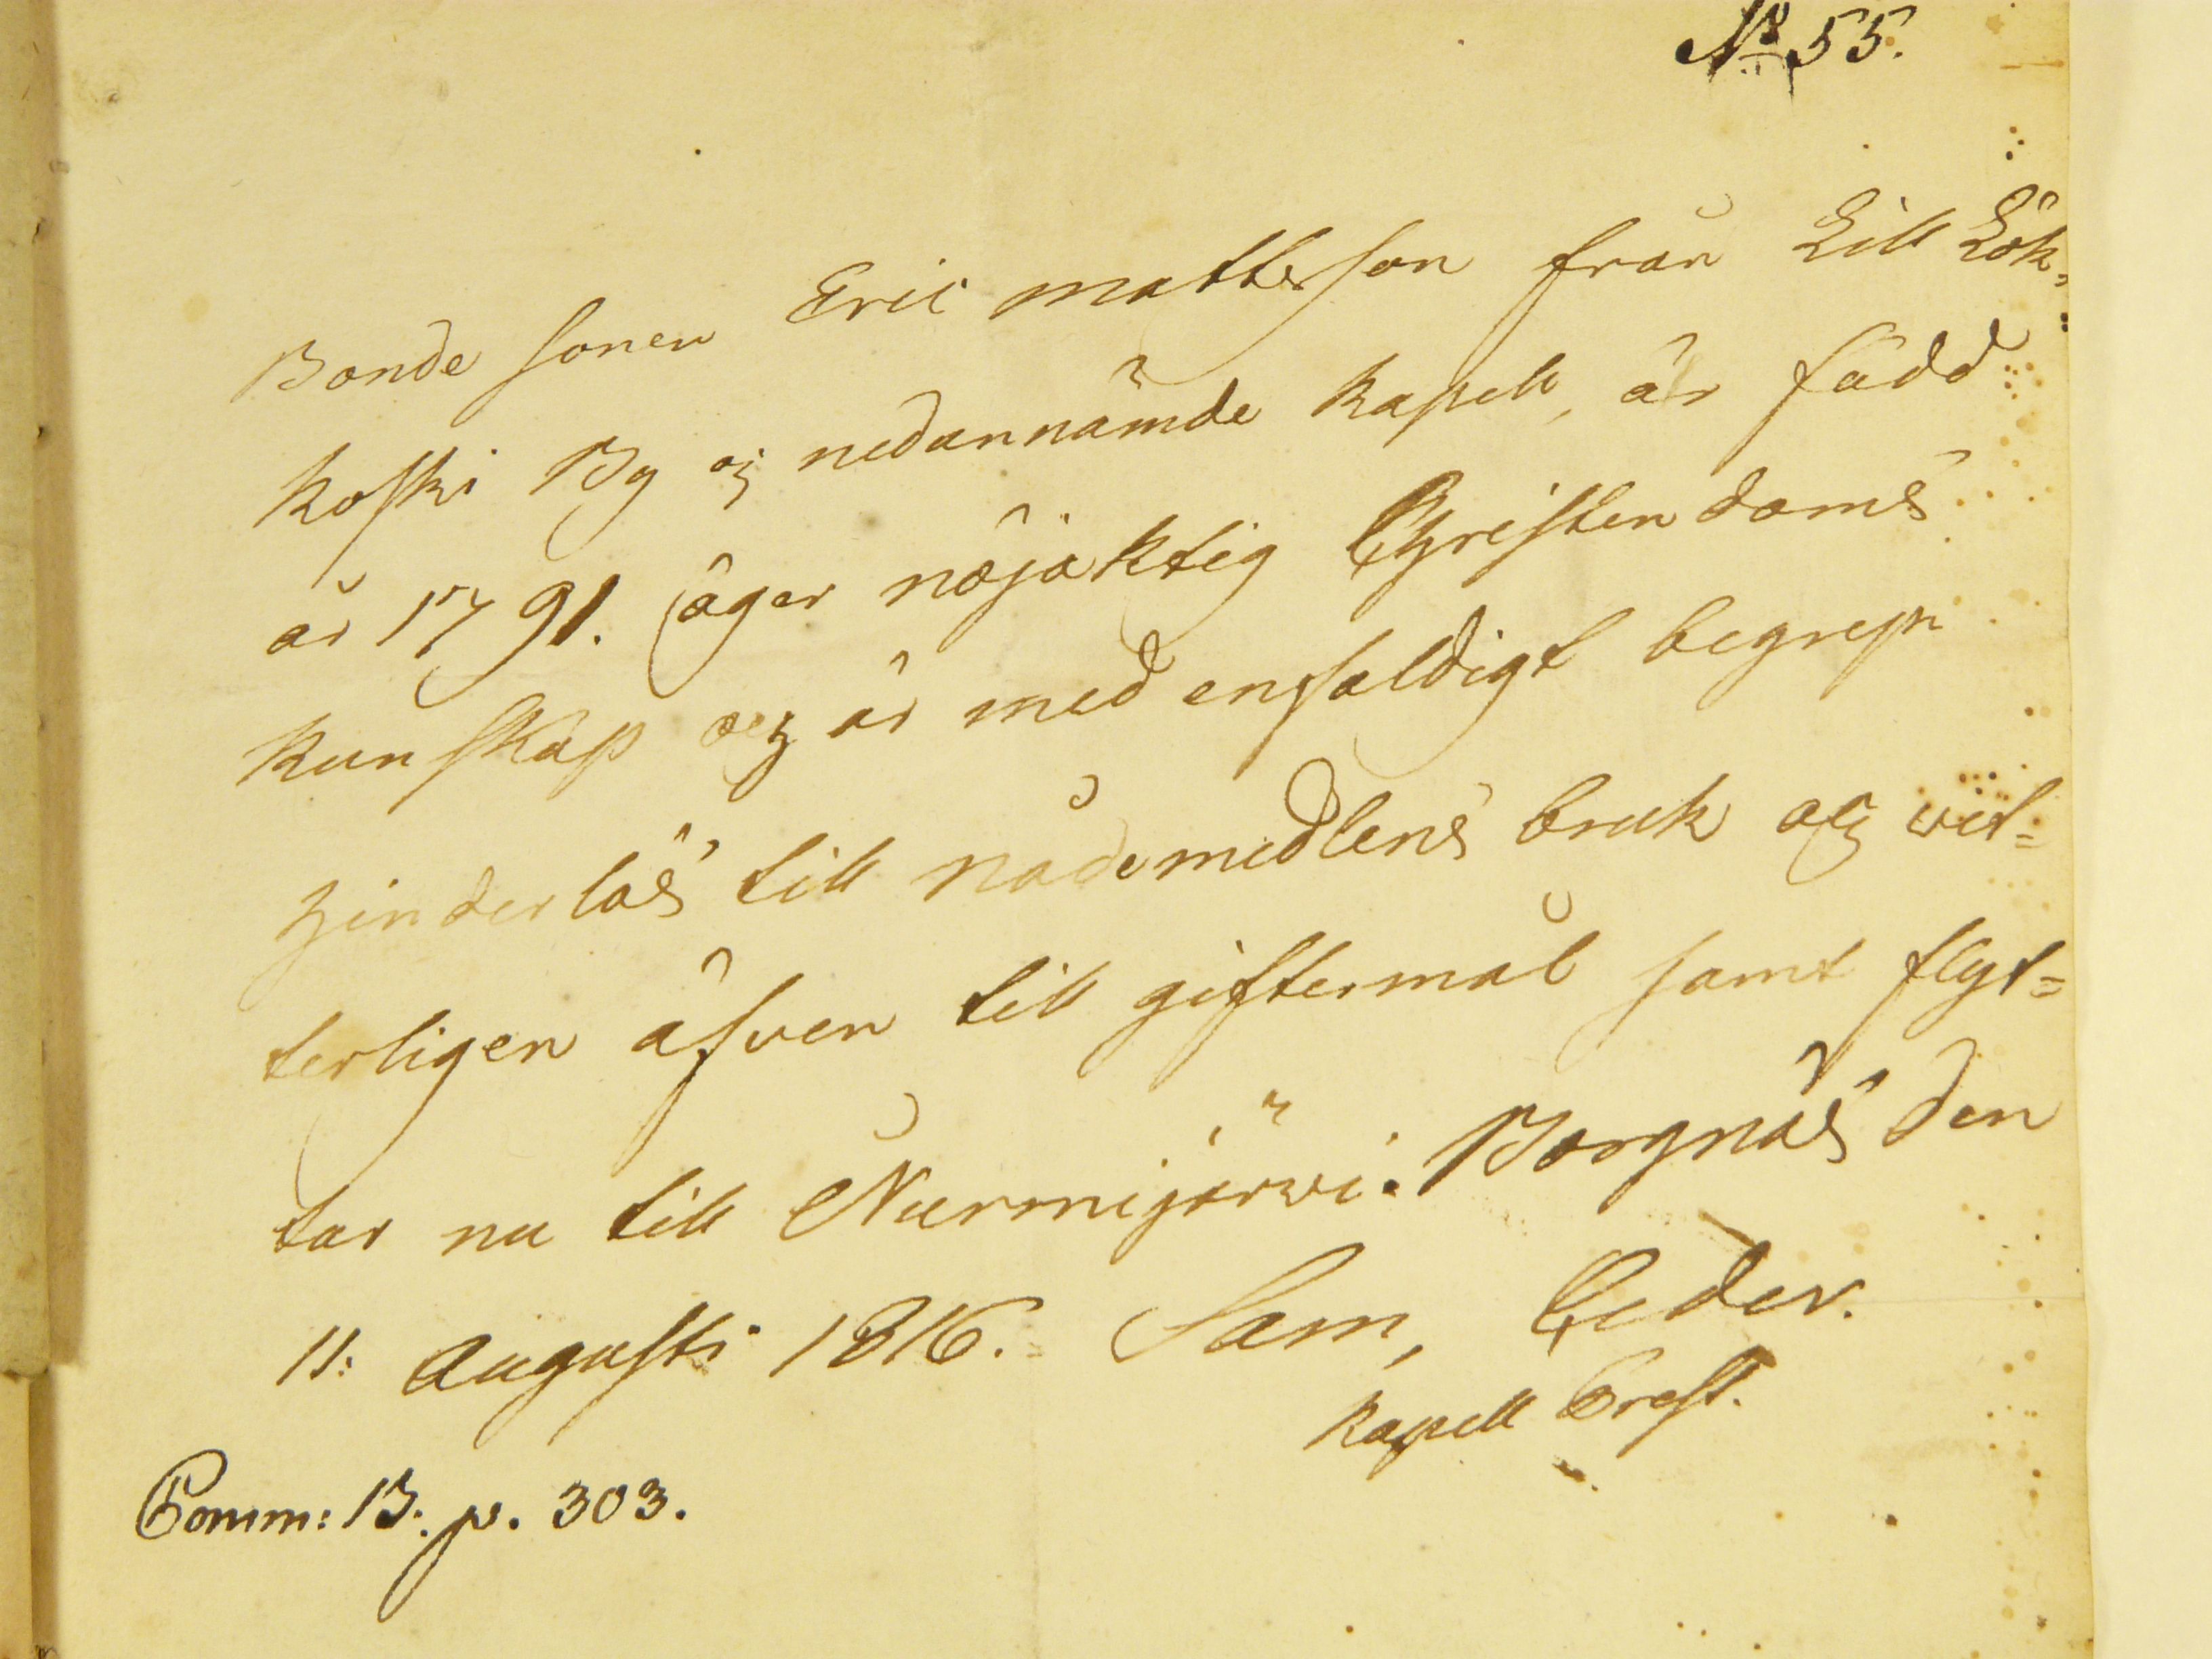 No 55.
Bonde sonen Eric Mattsson från Lill Lök=
koski By og nedannämde Kapell, är född
år 1791. äger nöjaktig Christendoms
kunskap och är med enfaldigt begrep
hinderlös till nådemedlens bruk och vet=
terligen äfven till giftermål samt flyt=
tar nu till Nurmijärvi. Borgnäs den
11: Augusti 1816. Sam, Ceder.
Kapell Prest.
Comm: B. p. 303.